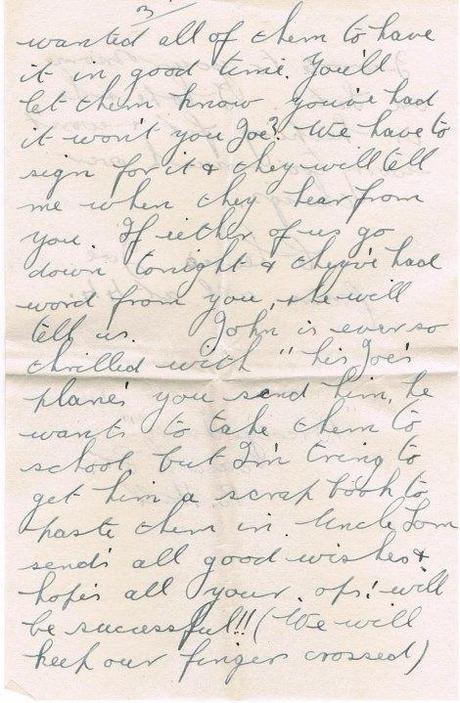 3/
wanted all of them to have
it in good time. You'll
let them know you've had
it won't you Joe? We have to
sign for it & they will tell
me when they hear from
you. If either of us go
down tonight & they've had
word from you, she will
tell us. John is ever so
thrilled with "his Joe's
planes' you send him, he
wants to take them to
school, but I'm tring to
get him a scrap book to
paste them in. Uncle Tom
sends all good wishes &
hopes all your ops! will
be successful!! (We will
keep our finger crossed)